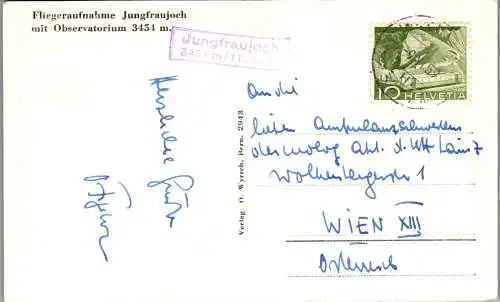 Fliegeraufnahme Jungfraujoch
mit Observatorium 3454 m.
Jungfraujoch
3454 m/11
10 HELVETIA
Herzliche Grüße
Verlag O. Wyrsch, Bern. 2943
An die
lieben Ambulanzschwestern
dermatolog Abt. d. KH Lainz
Wolkersbergenstr 1
WIEN XIII
Österreich